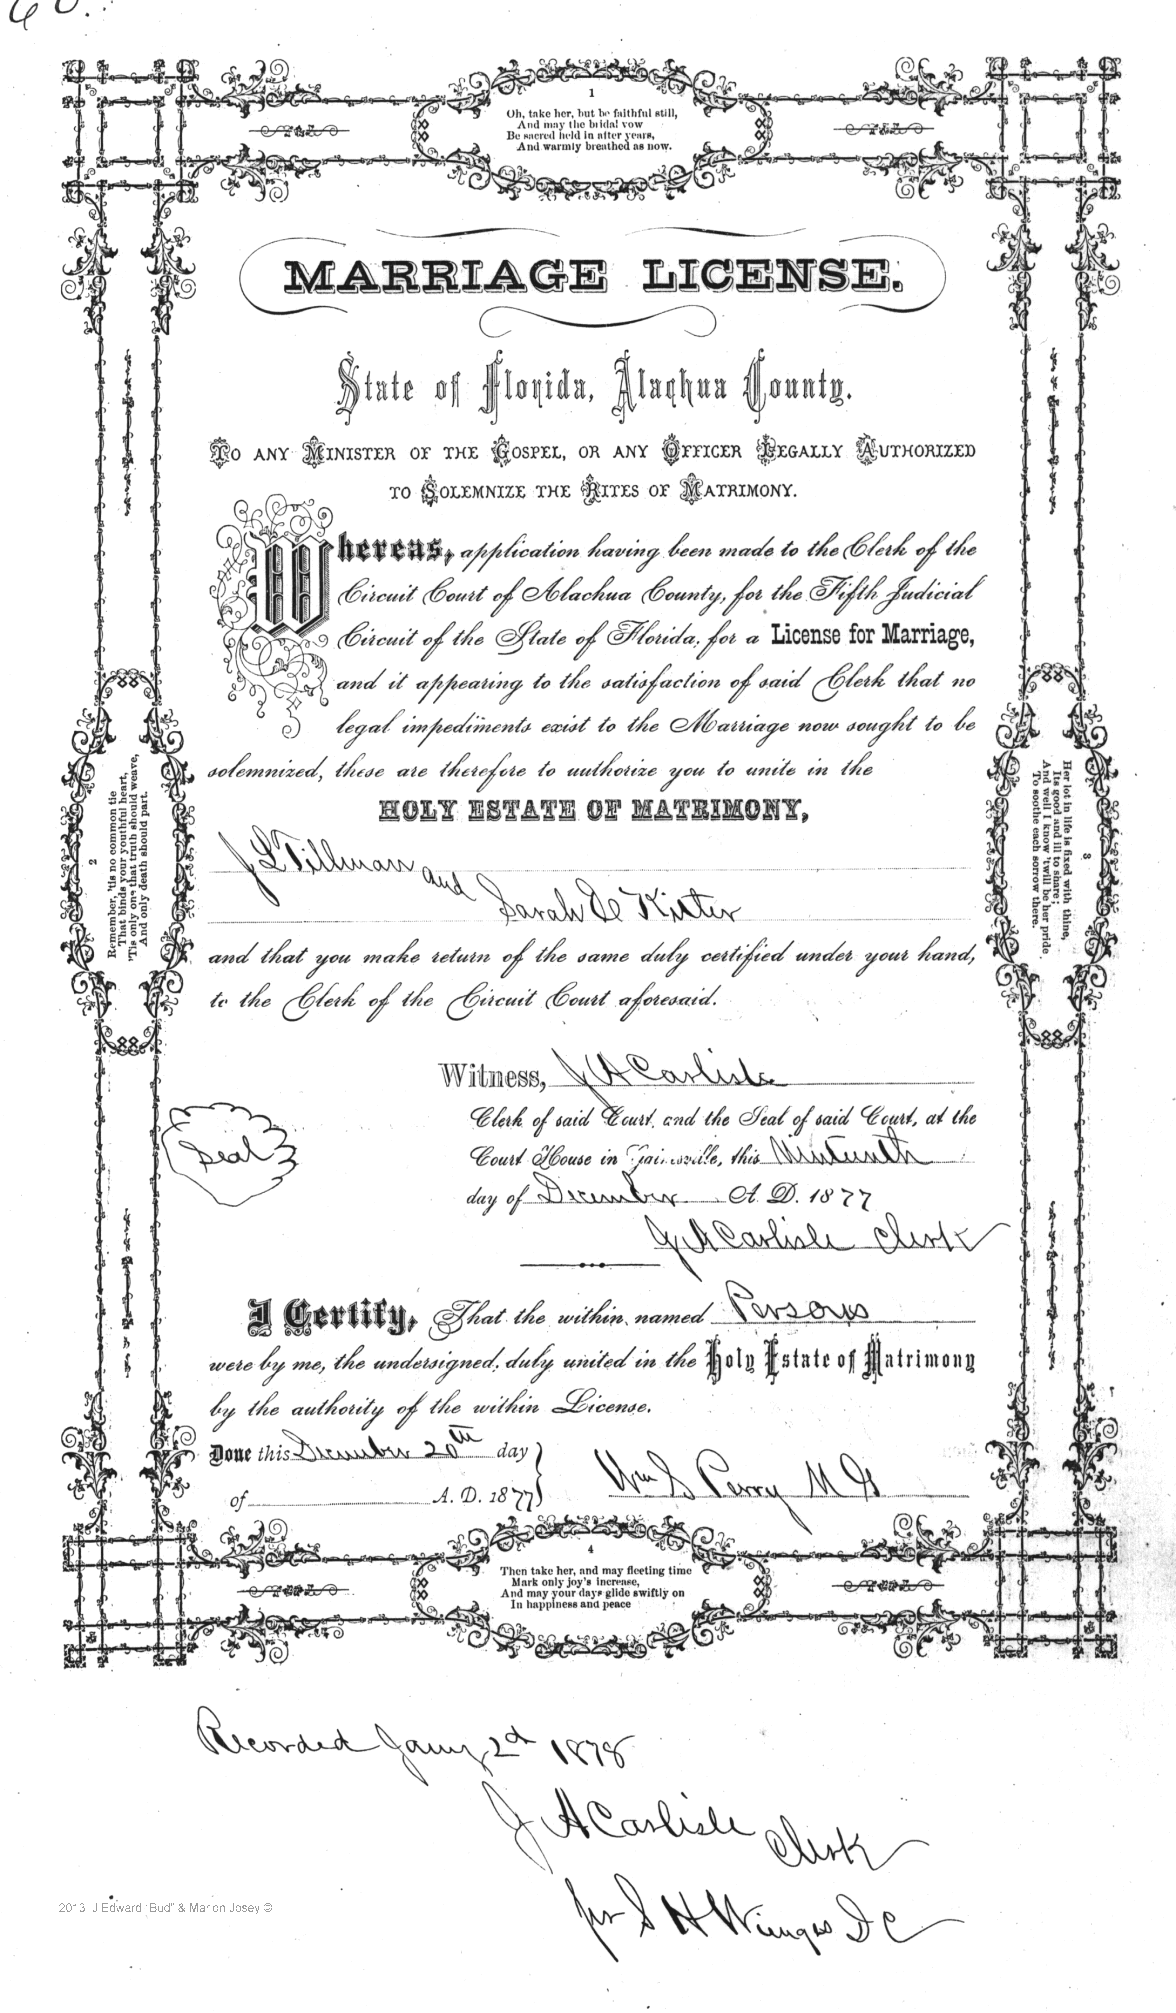 1
Oh, take her, but be faithful still,
And may the bridal vow
Be sacred held in after years,
And warmly breathed as now.
MARRIAGE LICENSE.
State of Florida, Alachua County.
TO ANY MINISTER OF THE GOSPEL, OR ANY OFFICER LEGALLY AUTHORIZED
TO SOLEMNIZE THE RITES OF MATRIMONY.
Whereas, application having been made to the Clerk of the
Circuit Court of Alachua County, for the Fifth Judicial
Circuit of the State of Florida, for a License for Marriage,
and it appearing to the satisfaction of said Clerk that no
legal impediments exist to the Marriage now sought to be
solemnized, these are therefore to authorize you to unite in the
HOLY ESTATE OF MATRIMONY,
J L Tillman and
Sarah E Kitter
and that you make return of the same duly certified under your hand,
to the Clerk of the Circuit Court aforesaid.
2
Remember, 'tis no common tie
That binds your youthful heart,
'Tis only one that truth should weave,
And only death should part.
3
Her lot in life is fixed with thine,
Its good and ill to share;
And well I know 'twill be her pride
To soothe each sorrow there.
Witness, J A Carlisle
Clerk of said Court, and the Seal of said Court, at the
Court House in Gainesville, this Ninteenth
day of December A. D. 1877
Seal
J A Carlisle Clerk
I Certify, That the within named Persons
were by me, the undersigned, duly united in the Holy Estate of Matrimony
by the authority of the within License.
Done this December 20th day
of A. D. 1877
Wm S Perry M G
4
Then take her, and may fleeting time
Mark only joy's increase,
And may your days glide swiftly on
In happiness and peace
Recorded Jany 2d 1878
J A Carlisle Clerk
per S H Wienges D C
2013 J Edward "Bud" & Marion Josey ©